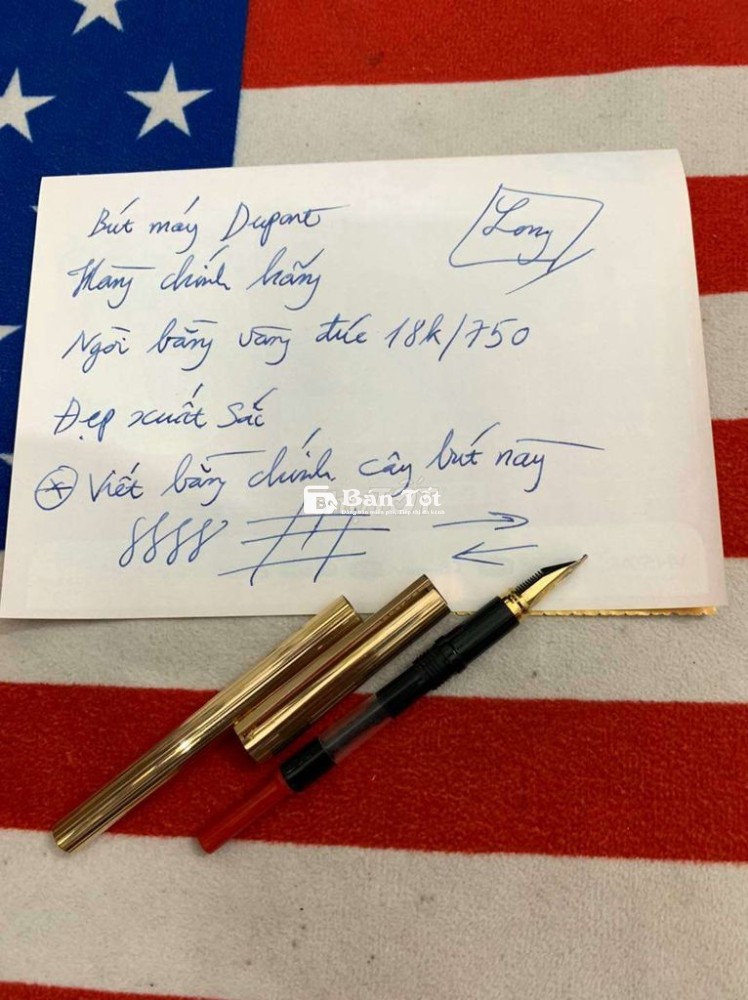 Bút máy Dupont
Long
Hàng chính hãng
Ngòi bằng vàng đúc 18k/750
Đẹp xuất sắc
Viết bằng chính cây bút này
Bán Tốt